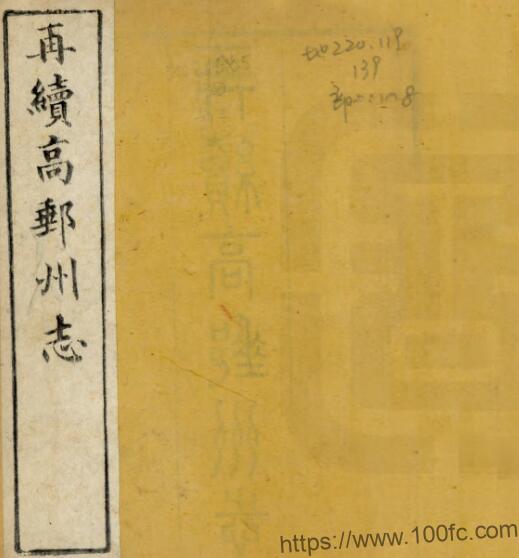 再續高郵州志
地220.119
139
https://www.100fc.com